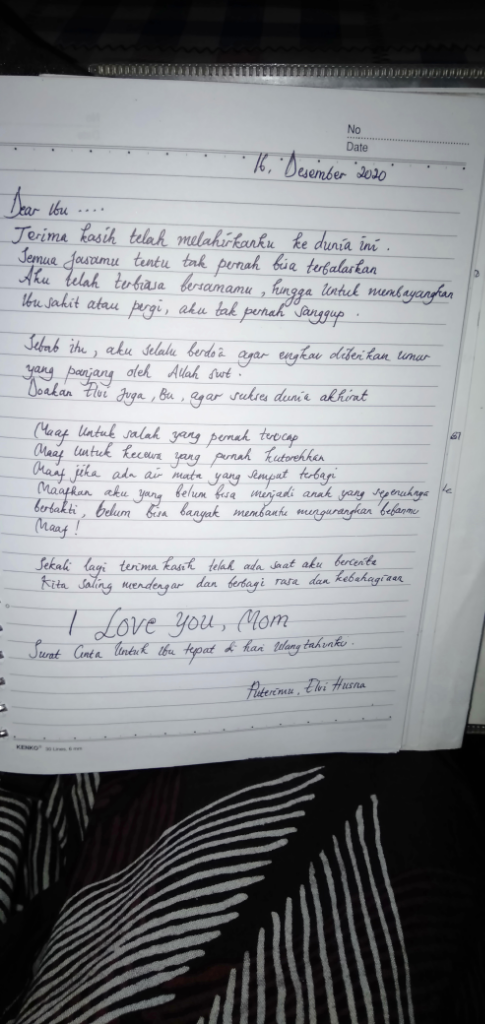 No
Date
16, Desember 2020
Dear Ibu ....
Terima kasih telah melahirkanku ke dunia ini.
Semua jasamu tentu tak pernah bisa terbalaskan
Aku telah terbiasa bersamamu, hingga untuk membayangkan
Ibu sakit atau pergi, aku tak pernah sanggup.
Sebab itu, aku selalu berdo'a agar engkau diberikan umur
yang panjang oleh Allah swt.
Doakan Elvi juga, Bu, agar sukses dunia akhirat
Maaf untuk salah yang pernah terucap
Maaf untuk kecewa yang pernah kutorehkan
Maaf jika ada air mata yang sempat terbagi
Maafkan aku yang belum bisa menjadi anak yang sepenuhnya
berbakti, belum bisa banyak membantu mengurangkan bebanmu
Maaf!
Sekali lagi terima kasih telah ada saat aku bercerita
Kita saling mendengar dan berbagi rasa dan kebahagiaan
I Love you, Mom
Surat Cinta untuk Ibu tepat di hari ulang tahunku.
Puterimu, Elvi Husna
KENKO